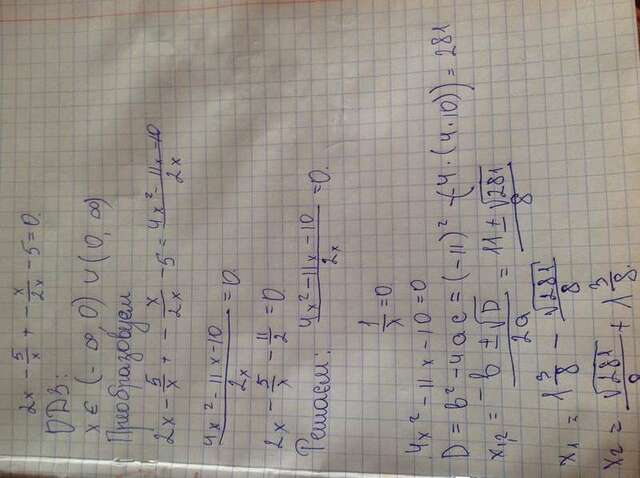 2x - 5/x + - x/2x - 5 = 0
ОДЗ:
x ∈ (-∞ 0) ∪ (0, ∞)
Преобразовуем
2x - 5/x + - x/2x - 5 = 4x² - 11x - 10 / 2x
4x² - 11x - 10 / 2x = 0.
2x - 5/x - 11/2 = 0
Решаем: 4x² - 11x - 10 / 2x = 0.
1/x = 0
4x² - 11x - 10 = 0
D = b² - 4ac = (-11)² - (4·(4·10)) = 281
x₁,₂ = -b ± √D / 2a = 11 ± √281 / 8
x₁ = 1 3/8 - √281 / 8
x₂ = √281 / 8 + 1 3/8.